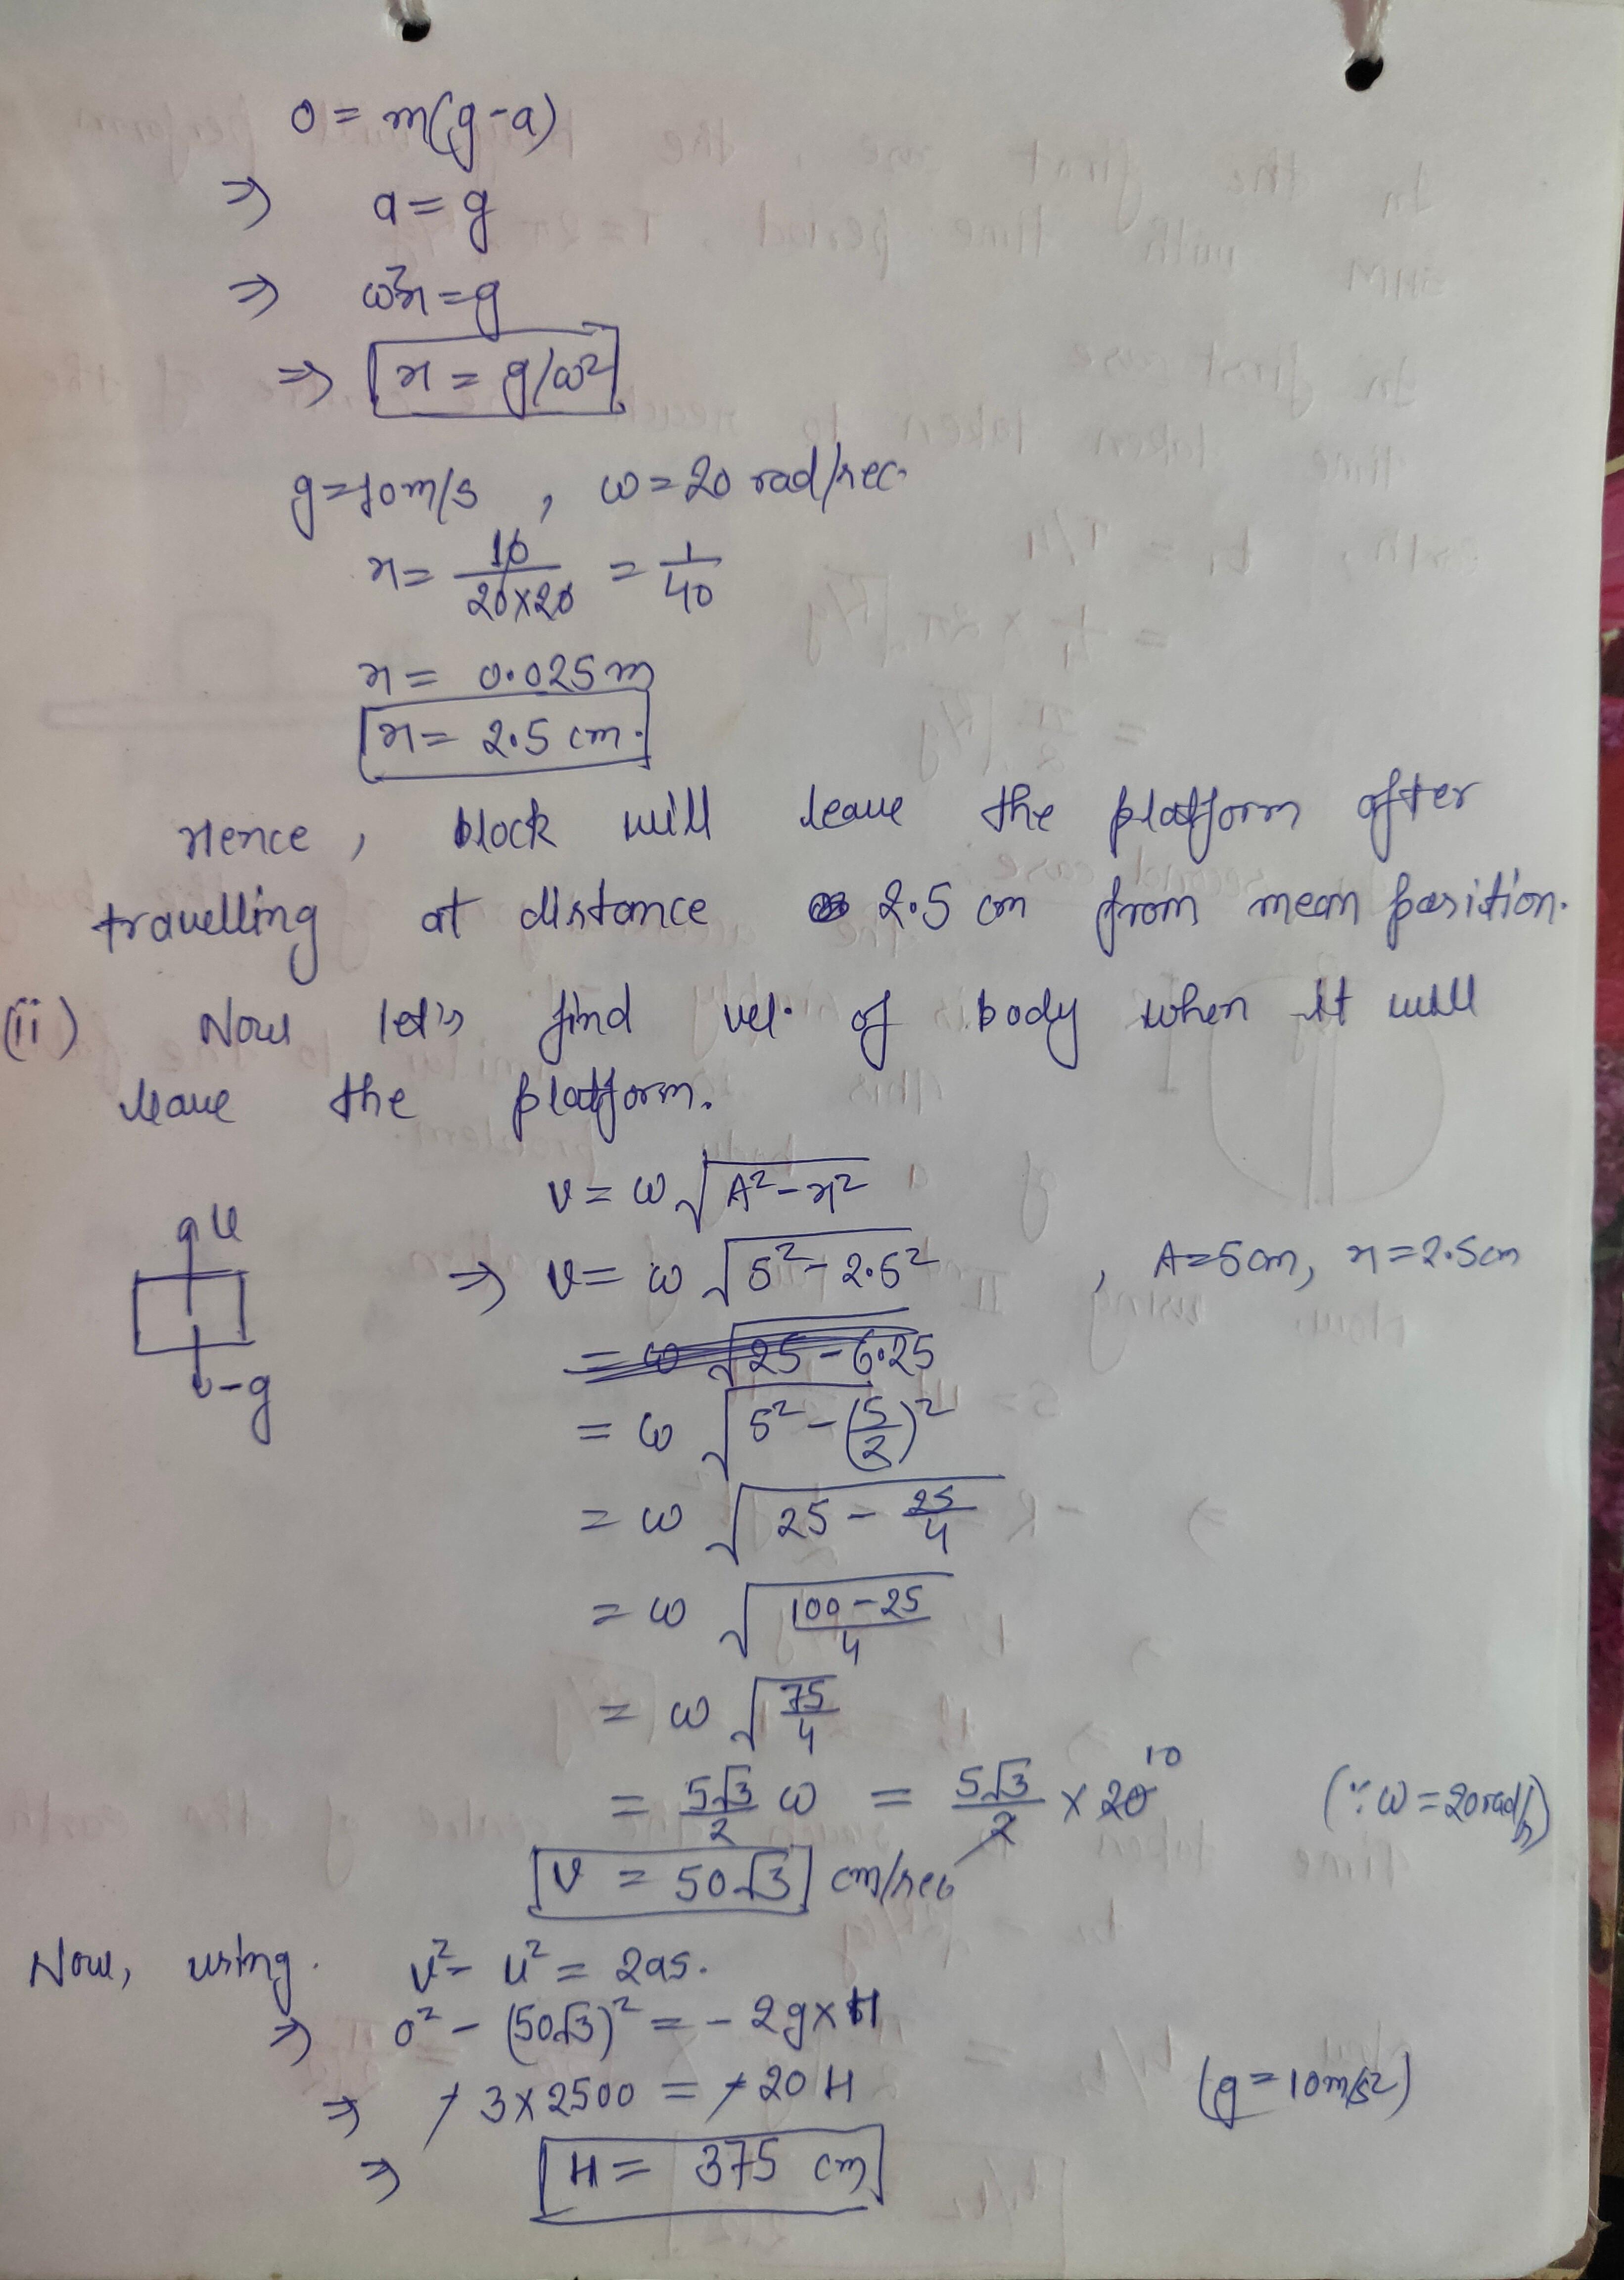 0 = m(g-a)
⇒ a = g
⇒ ω²x = g
⇒ x = g/ω²
g = 10m/s , ω = 20 rad/sec.
x = 10/20×20 = 1/40
x = 0.025m
x = 2.5 cm.
Hence, block will leave the platform after
travelling at distance 2.5 cm from mean position.
(ii) Now let's find vel. of body when it will
leave the platform.
v = ω√A²-x²
u
⇒ v = ω√5²-2.5² , A=5cm, x=2.5cm
= ω√25-6.25
-g
= ω√5²-(5/2)²
= ω√25-25/4
= ω√100-25/4
= ω√75/4
= 5√3/2 ω = 5√3/2 × 20 10 (∵ ω = 20rad/s)
v = 50√3 cm/sec
Now, using. v²- u² = 2as.
⇒ 0² - (50√3)² = - 2g×H
⇒ - 3×2500 = -20 H (g=10m/s²)
⇒ H = 375 cm